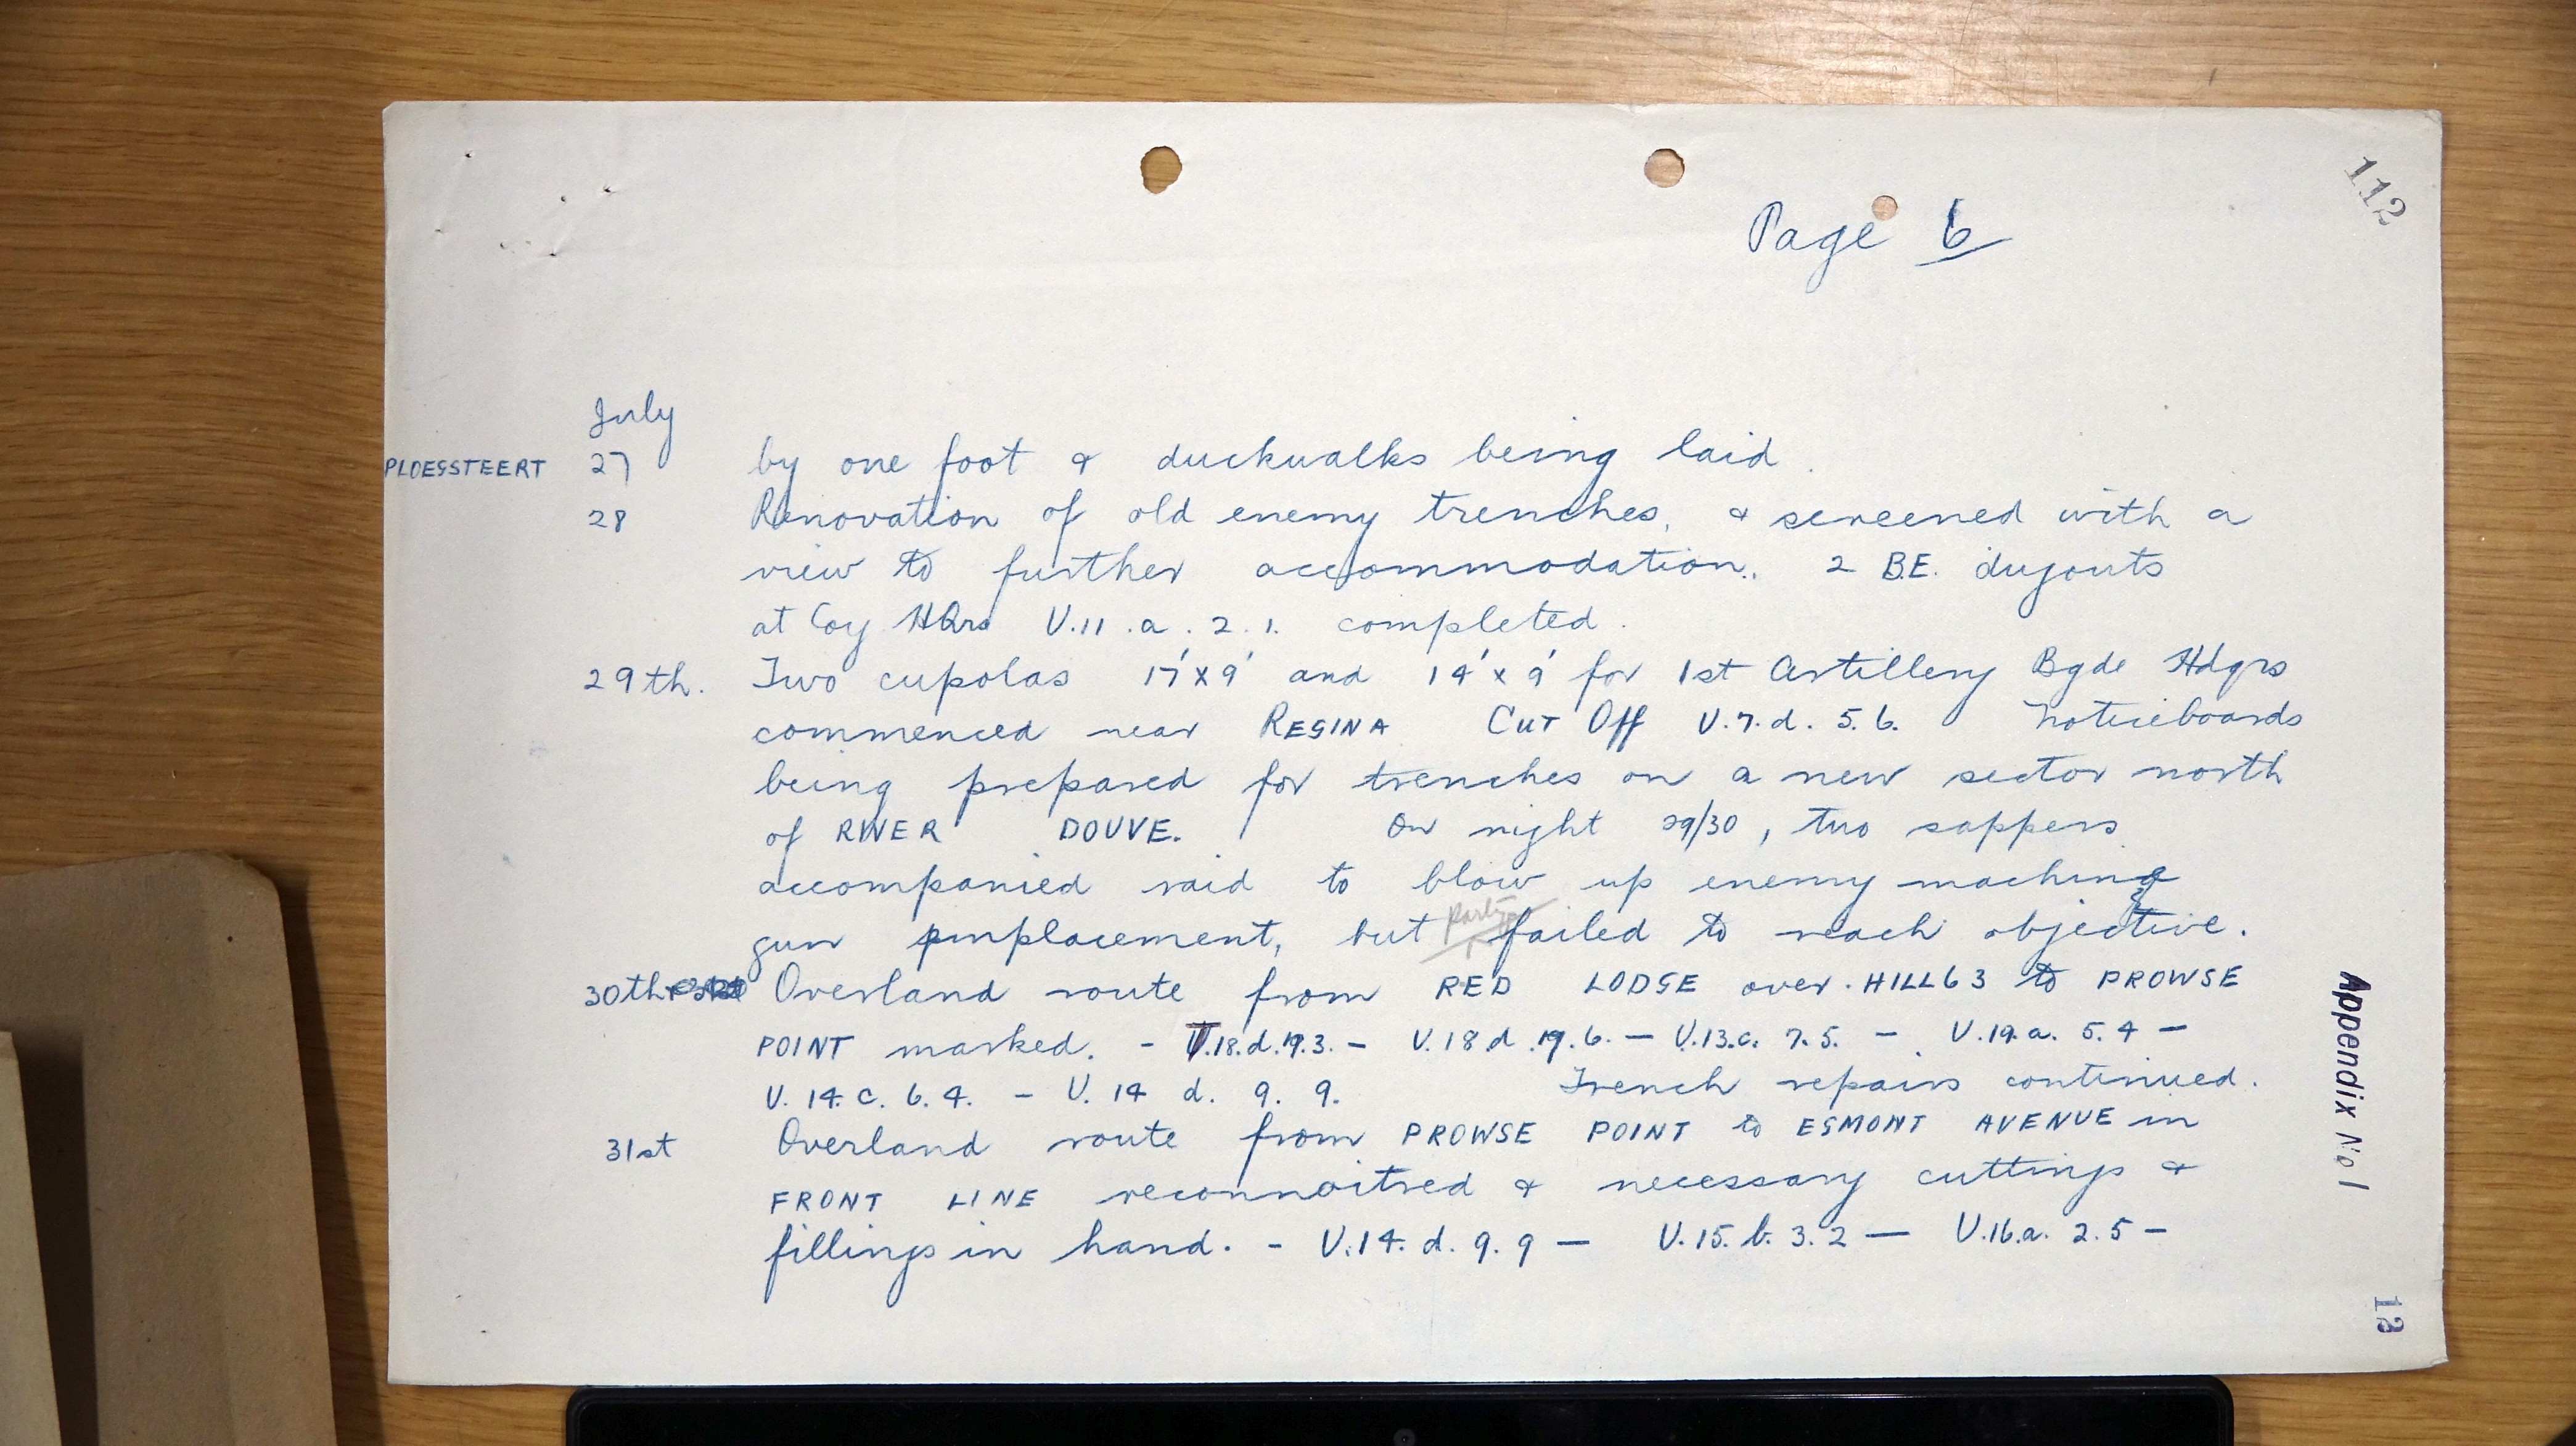 112
Page 6
July
PLOEGSTEERT 27 by one foot & duckwalks being laid.
28 Renovation of old enemy trenches, & screened with a
view to further accommodation. 2 B.E. dugouts
at Coy HQrs V.11.a.2.1. completed.
29th. Two cupolas 17'x9' and 14'x9' for 1st Artillery Bgde Hdqrs
commenced near REGINA CUT Off U.7.d.5.6. Noticeboards
being prepared for trenches on a new sector north
of RIVER DOUVE. On night 29/30, two sappers
accompanied raid to blow up enemy machine
gun emplacement, but party failed to reach objective.
30th Overland route from RED LODGE over HILL 63 to PROWSE
POINT marked. - T.18.d.19.3. - V.18.d.19.6. - U.13.c.7.5. - V.19.a.5.4 -
U.14.c.6.4. - U.14 d. 9. 9. Trench repairs continued.
31st Overland route from PROWSE POINT to ESMONT AVENUE in
FRONT LINE reconnoitred & necessary cuttings &
fillings in hand. - U.14.d.9.9 - U.15.b.3.2 - U.16.a.2.5 -
Appendix No 1
13